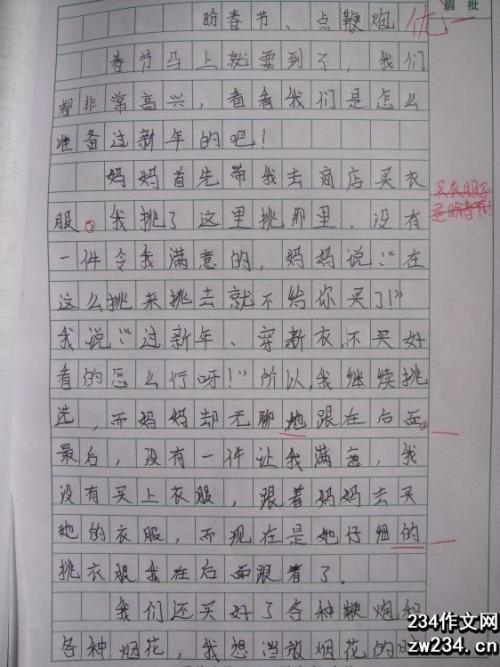 眉 批
盼春节、点鞭炮 优一
春节马上就要到了，我们
都非常高兴，看看我们是怎么
准备过新年的吧！
妈妈首先带我去商店买衣
买衣服不
服。我挑了这里挑那里，没有
是盼春节！
一件令我满意的，妈妈说：“在
这么挑来挑去就不给你买了！”
我说：“过新年、穿新衣，不买好
看的怎么行呀！”所以，我继续挑
选，而妈妈却无聊地跟在后面。
最后，没有一件让我满意，我
没有买上衣服，跟着妈妈去买
她的衣服，而现在是她仔细的
挑衣服我在后面跟着了。
我们还买好了各种鞭炮和
各种烟花，我想当放烟花的时
234作文网
zw234.cn